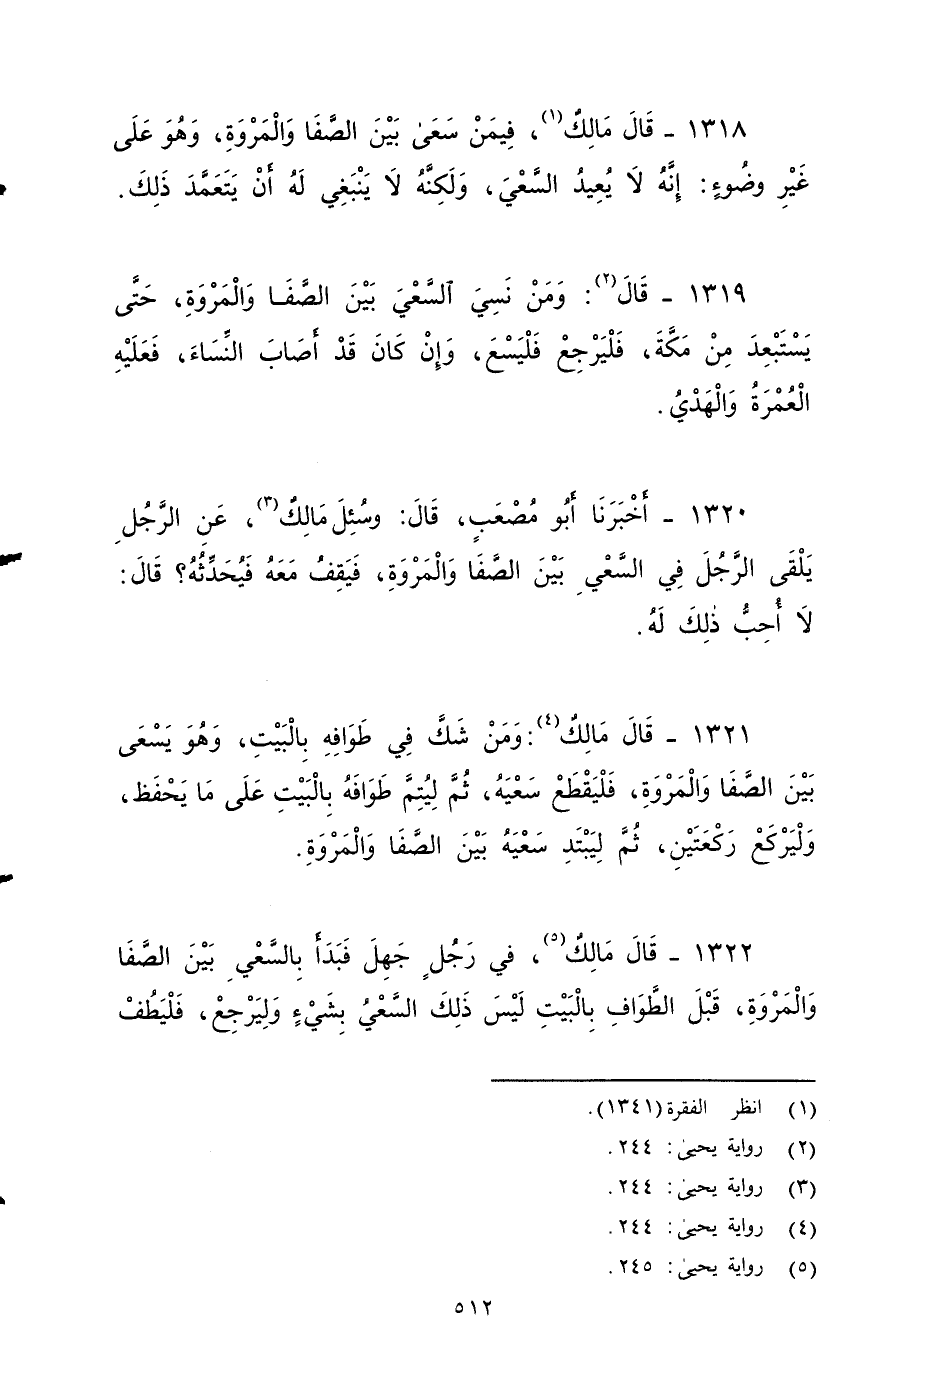 ١٣١٨ - قَالَ مَالِكٌ(١)، فِيمَنْ سَعَىٰ بَيْنَ الصَّفَا وَالْمَرْوَةِ، وَهُوَ عَلَى
غَيْرِ وضُوءٍ: إِنَّهُ لَا يُعِيدُ السَّعْيَ، وَلَكِنَّهُ لَا يَنْبَغِي لَهُ أَنْ يَتَعَمَّدَ ذَلِكَ.
١٣١٩ - قَالَ(٢): وَمَنْ نَسِيَ ٱلسَّعْيَ بَيْنَ الصَّفَا وَالْمَرْوَةِ، حَتَّى
يَسْتَبْعِدَ مِنْ مَكَّةَ، فَلْيَرْجِعْ فَلْيَسْعَ، وَإِنْ كَانَ قَدْ أَصَابَ النِّسَاءَ، فَعَلَيْهِ
الْعُمْرَةُ وَالْهَدْيُ.
١٣٢٠ - أَخْبَرَنَا أَبُو مُصْعَبٍ، قَالَ: وسُئِلَ مَالِكٌ(٣)، عَنِ الرَّجُلِ
يَلْقَى الرَّجُلَ فِي السَّعْيِ بَيْنَ الصَّفَا وَالْمَرْوَةِ، فَيَقِفُ مَعَهُ فَيُحَدِّثُهُ؟ قَالَ:
لَا أُحِبُّ ذٰلِكَ لَهُ.
١٣٢١ - قَالَ مَالِكٌ(٤): وَمَنْ شَكَّ فِي طَوَافِهِ بِالْبَيْتِ، وَهُوَ يَسْعَى
بَيْنَ الصَّفَا وَالْمَرْوَةِ، فَلْيَقْطَعْ سَعْيَهُ، ثُمَّ لِيُتِمَّ طَوَافَهُ بِالْبَيْتِ عَلَى مَا يَحْفَظ،
وَلْيَرْكَعْ رَكْعَتَيْنِ، ثُمَّ لِيَبْتَدِ سَعْيَهُ بَيْنَ الصَّفَا وَالْمَرْوَةِ.
١٣٢٢ - قَالَ مَالِكٌ(٥)، في رَجُلٍ جَهِلَ فَبَدَأَ بِالسَّعْيِ بَيْنَ الصَّفَا
وَالْمَرْوَةِ، قَبْلَ الطَّوَافِ بِالْبَيْتِ لَيْسَ ذَلِكَ السَّعْيُ بِشَيْءٍ وَلِيَرْجِعْ، فَلْيَطُفْ
(١) انظر الفقرة (١٣٤١).
(٢) رواية يحيىٰ: ٢٤٤.
(٣) رواية يحيىٰ: ٢٤٤.
(٤) رواية يحيىٰ: ٢٤٤.
(٥) رواية يحيىٰ: ٢٤٥.
٥١٢